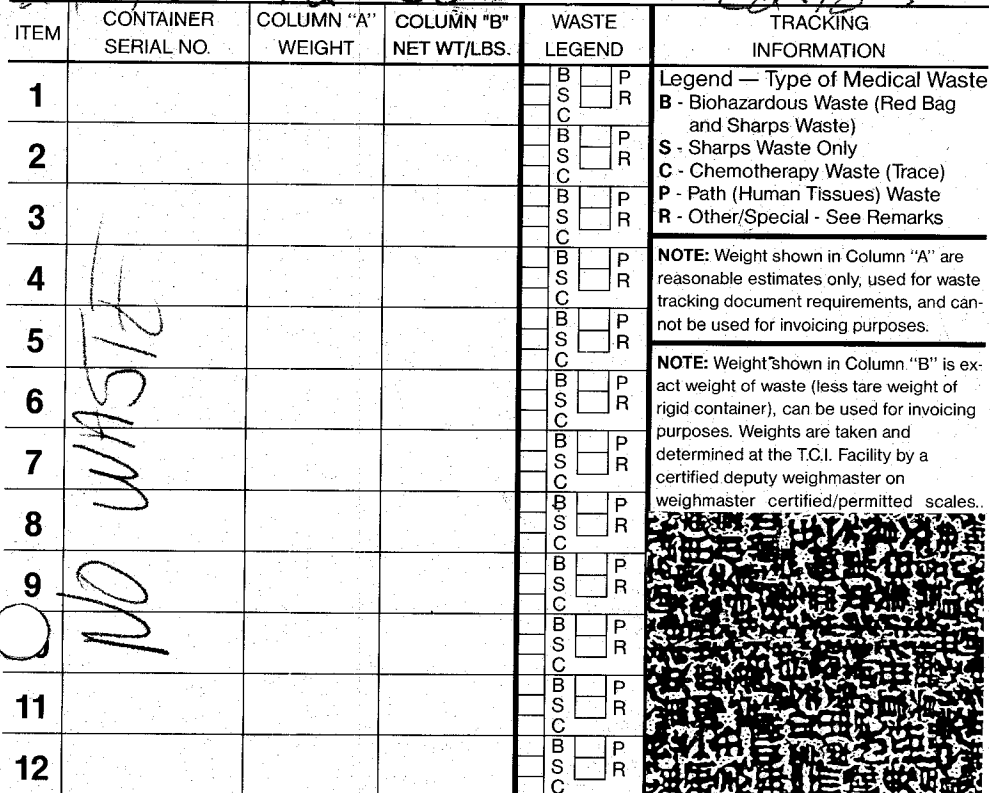 ITEM
CONTAINER
SERIAL NO.
COLUMN "A"
WEIGHT
COLUMN "B"
NET WT/LBS.
WASTE
LEGEND
TRACKING
INFORMATION
1 B P
S R
C
2 B P
S R
C
3 B P
S R
C
4 B P
S R
C
5 B P
S R
C
6 B P
S R
C
7 B P
S R
C
8 B P
S R
C
9 B P
S R
C
B P
S R
C
11 B P
S R
C
12 B P
S R
C
NO WASTE
Legend — Type of Medical Waste
B - Biohazardous Waste (Red Bag
and Sharps Waste)
S - Sharps Waste Only
C - Chemotherapy Waste (Trace)
P - Path (Human Tissues) Waste
R - Other/Special - See Remarks
NOTE: Weight shown in Column "A" are
reasonable estimates only, used for waste
tracking document requirements, and can-
not be used for invoicing purposes.
NOTE: Weight shown in Column "B" is ex-
act weight of waste (less tare weight of
rigid container), can be used for invoicing
purposes. Weights are taken and
determined at the T.C.I. Facility by a
certified deputy weighmaster on
weighmaster certified/permitted scales..